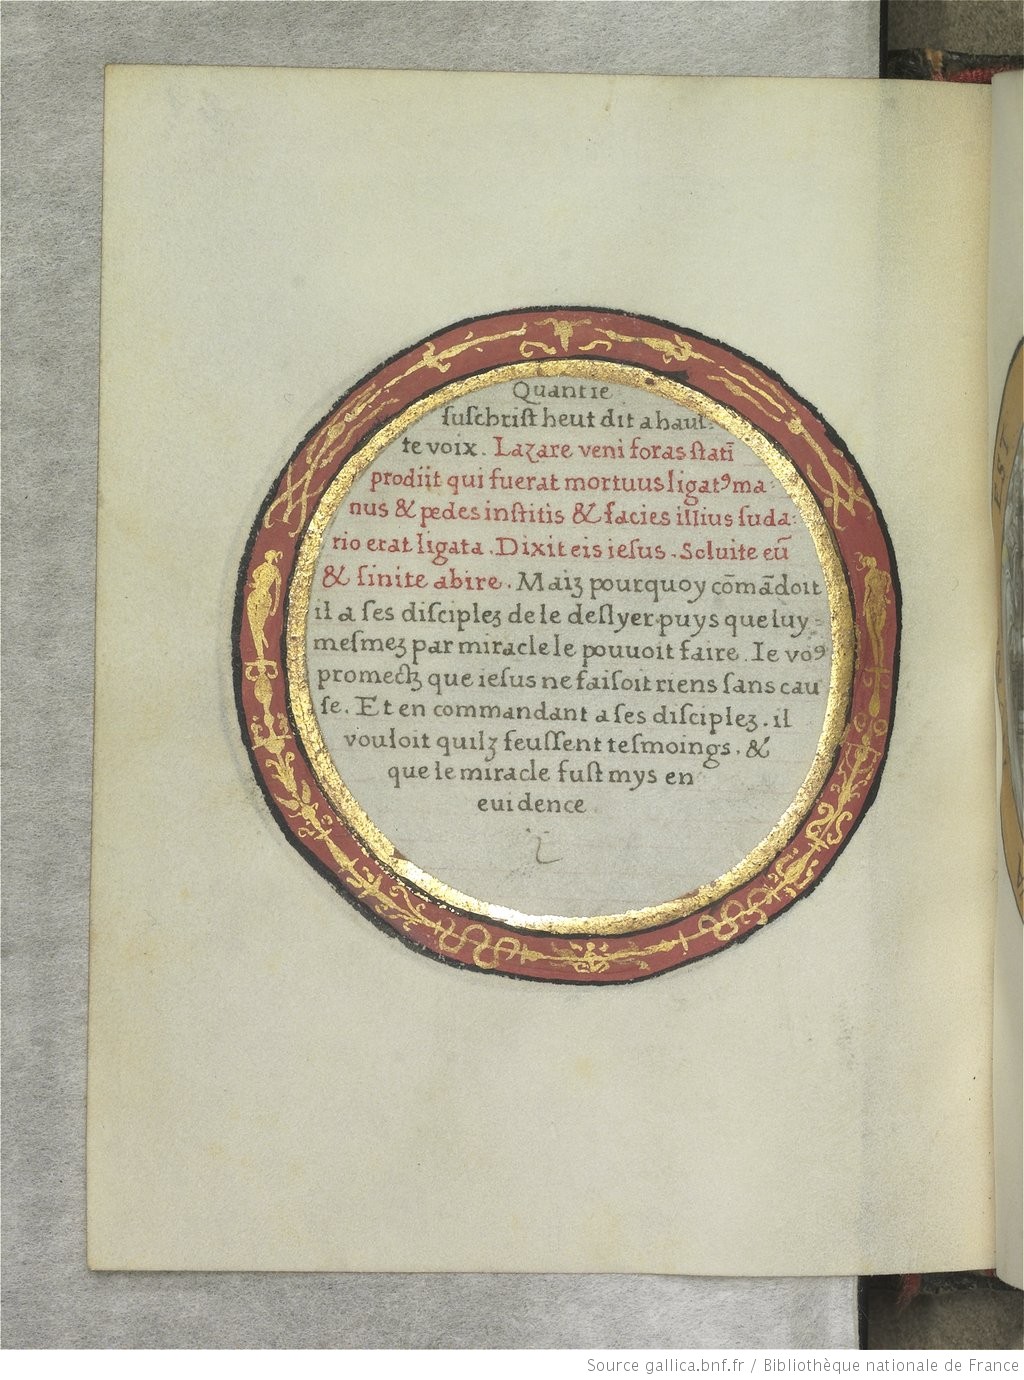 Quant ie
suſchriſt heut dit a haul:
te voix. Lazare veni foras ſtatĩ
prodiit qui fuerat mortuus ligatꝰ ma
nus & pedes inſtitis & facies illius ſuda:
rio erat ligata. Dixit eis ieſus. Soluite eũ
& ſinite abire. Maiz pourquoy cõmãdoit
il a ſes diſciplez de le deſlyer puys que luy :
meſmez par miracle le pouuoit faire. Ie voꝰ
promectz que ieſus ne faiſoit riens ſans cau
ſe. Et en commandant a ſes diſciplez. il
vouloit quilz feuſſent teſmoings. &
que le miracle fuſt mys en
euidence
EST
Source gallica.bnf.fr / Bibliothèque nationale de France